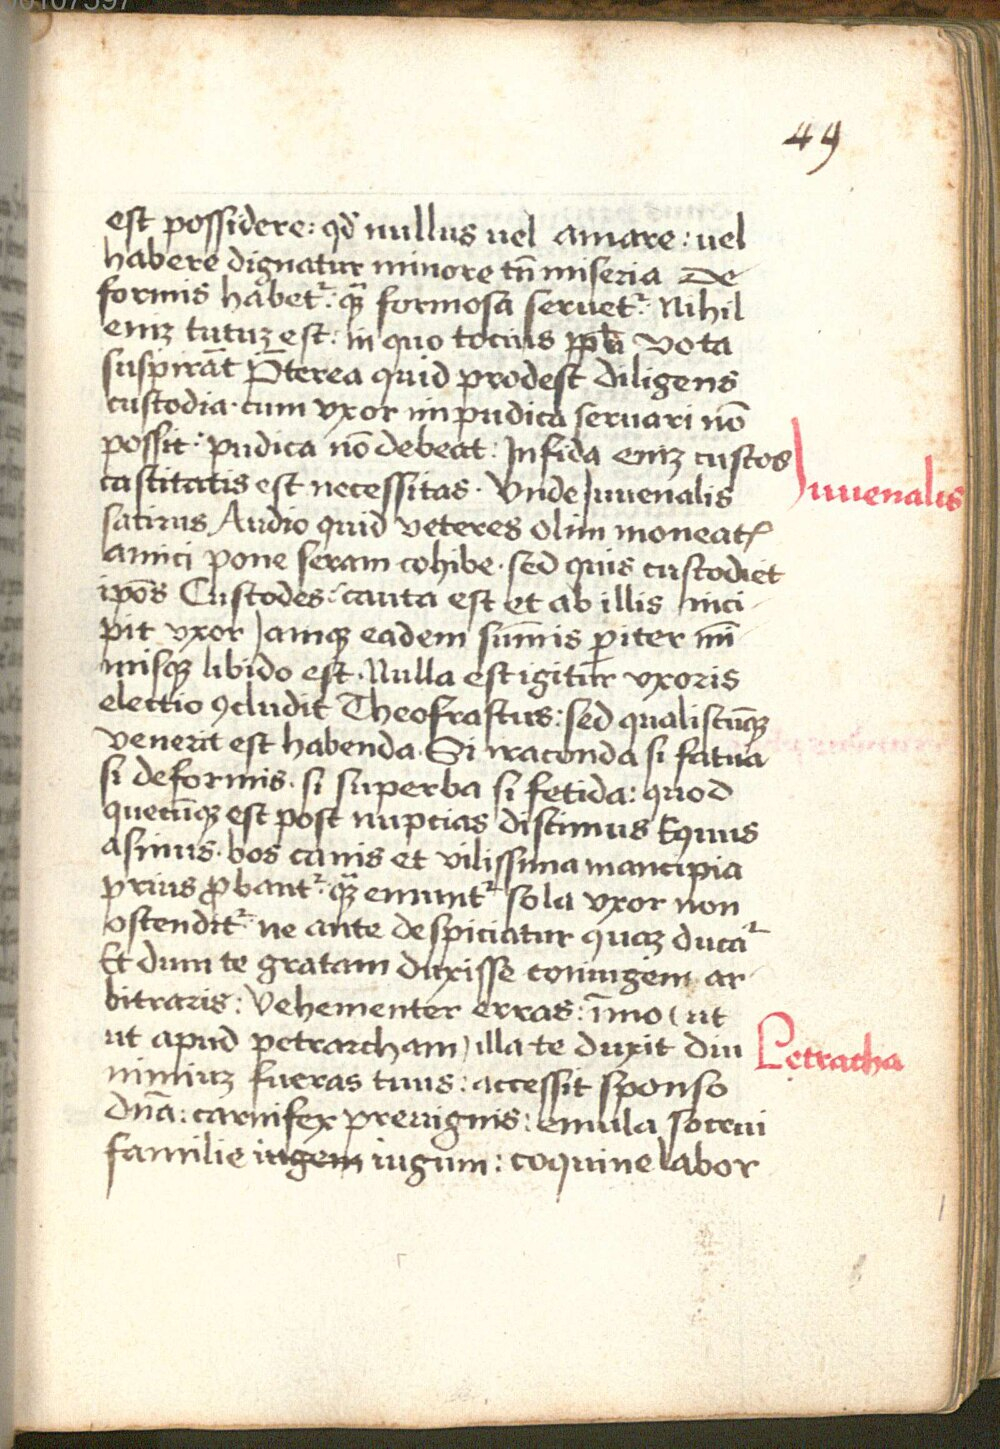 49
est possidere: qđ nullus uel amare: uel
habere dignatur minore tn̄ miseria De
formis habet᷑: qᷓ formosa seruet᷑: Nihil
eniʒ tutuʒ est: in quo tocius pp̄li vota
suspirāt P̄terea quid prodest diligens
custodia· cum vxor impudica seruari nō
possit: pudica nō debeat: Infida eniʒ custos
Iuuenalis
castitatis est necessitas· Vnde Juuenalis
satirus Audio quid veteres olim moneatꝭ
amici pone seram cohibe· sed quis custodiet
ip̄os Custodes: cauta est et ab illis inci-
pit vxor Jamqꝫ eadem sum̄is ꝑiter mi-
misqꝫ libido est· Nulla est igitur vxoris
electio ꝯcludit Theofrastus: sed qualiscūqꝫ
venerit est habenda· Si iraconda si fatua
si deformis· si superba si fetida: quod
quecūqꝫ est post nupcias discimus Equus
asinus· bos canis et vilissima mancipia
prius ꝓbant᷑: qᷓʒ emunt᷑ sola vxor non
ostendit᷑: ne ante despiciatur quaʒ ducat᷑
Et dum te gratam duxisse coniugem ar-
bitraris: Vehementer erras: īmo (ut
ut apud petrarcham) illa te duxit diu
Petracha
nimiuʒ fueras tuus: accessit sponso
dn̄a: carnifex preuignis: emula socrui
familie iugem iugum: coquine labor